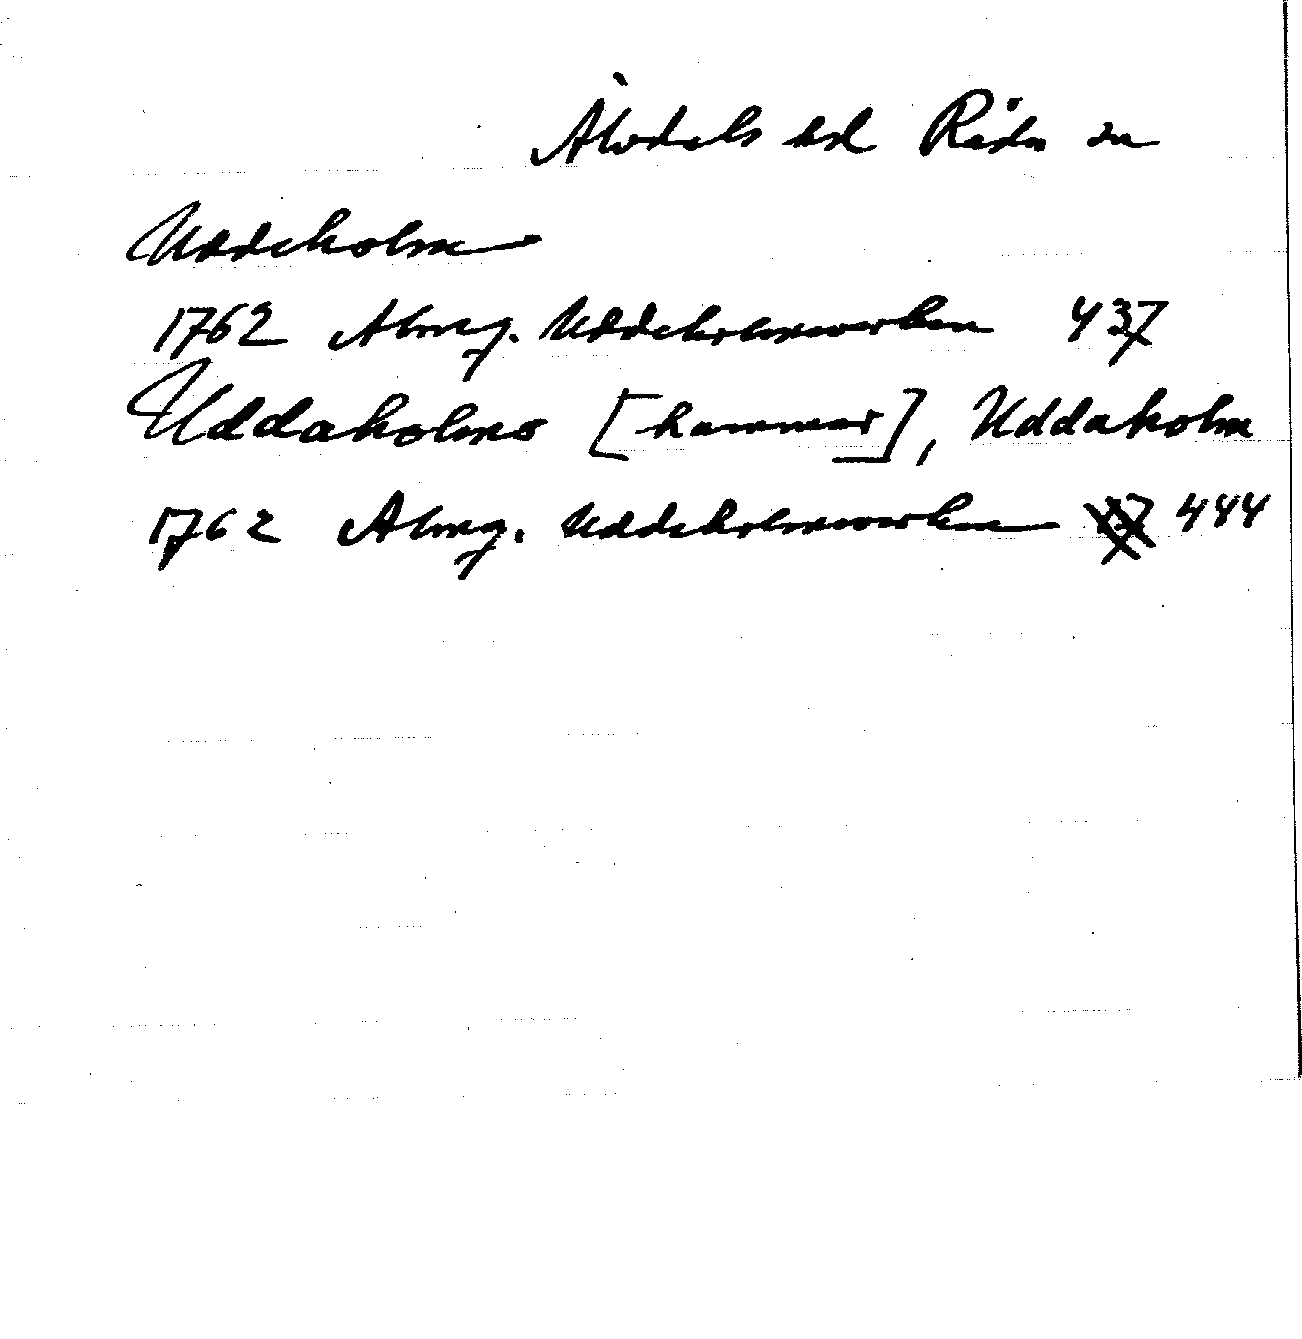 Älvdals hd Råda sn
Uddeholm
1762 Almg. Uddeholmsverken 437
Uddaholms [hammar], Uddaholm
1762 Almg. Uddeholmsverken 444